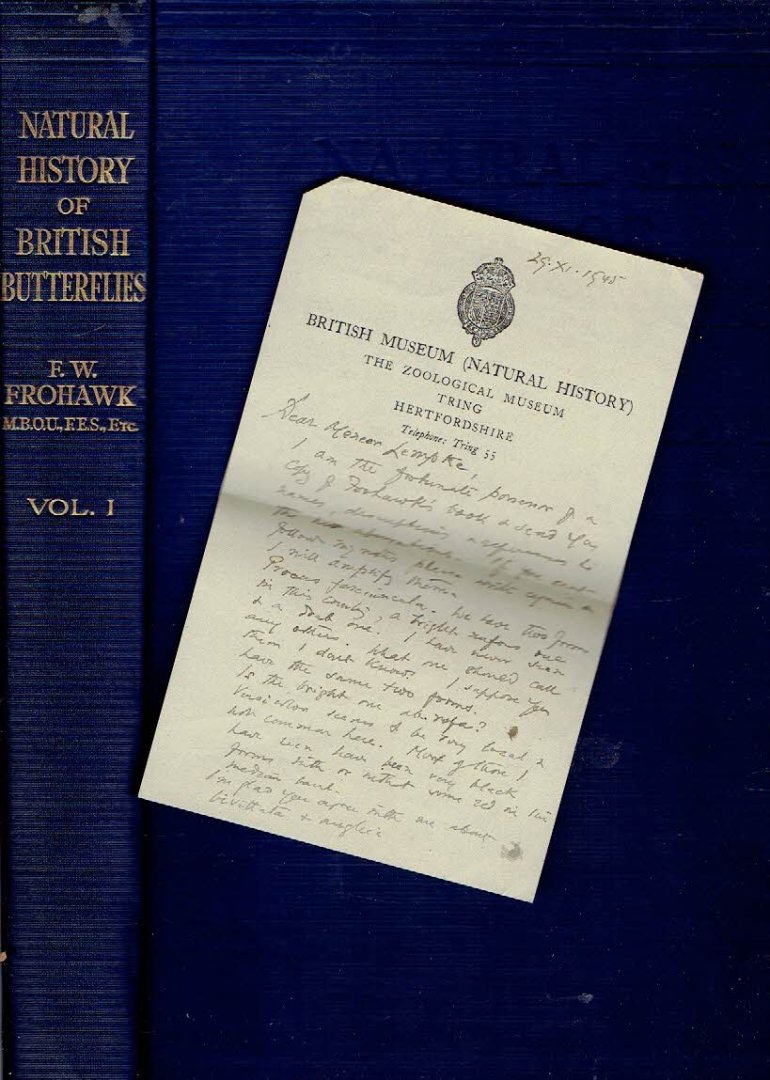 NATURAL
HISTORY
OF
BRITISH
BUTTERFLIES
F. W.
FROHAWK
M.B.O.U., F.E.S., ETC.
VOL. I
29.XI.1945
BRITISH MUSEUM (NATURAL HISTORY)
THE ZOOLOGICAL MUSEUM
TRING
HERTFORDSHIRE
Telephone: Tring 55
Dear Lempke,
I am the fortunate possessor of a
copy of Frohawk's book & send you
names, descriptions & references to
the
follow my notes please write again &
I will amplify them.
Procus fasciuncula. We have two forms
in this country, a bright rufous one
& a drab one. I have never seen
any others. What one should call
them I don't know. I suppose you
have the same two forms.
Is the bright one ab. rufa?
Versicolor seems to be very local &
not common here. Most of those I
have seen have been very black
forms with or without some red on the
median band.
I'm glad you agree with me about
bivittata & anglica